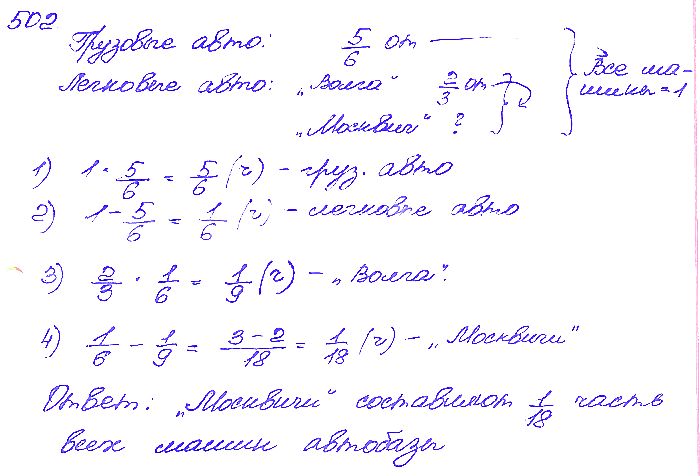 502
Грузовые авто: 5/6 от
Легковые авто: „Волга" 2/3 от
„Москвич" ?
Все ма-
шины = 1
1) 1 · 5/6 = 5/6 (ч) - груз. авто
2) 1 - 5/6 = 1/6 (ч) - легковые авто
3) 2/3 · 1/6 = 1/9 (ч) - „Волга".
4) 1/6 - 1/9 = 3-2/18 = 1/18 (ч) - „Москвичи"
Ответ: „Москвичи" составляют 1/18 часть
всех машин автобазы